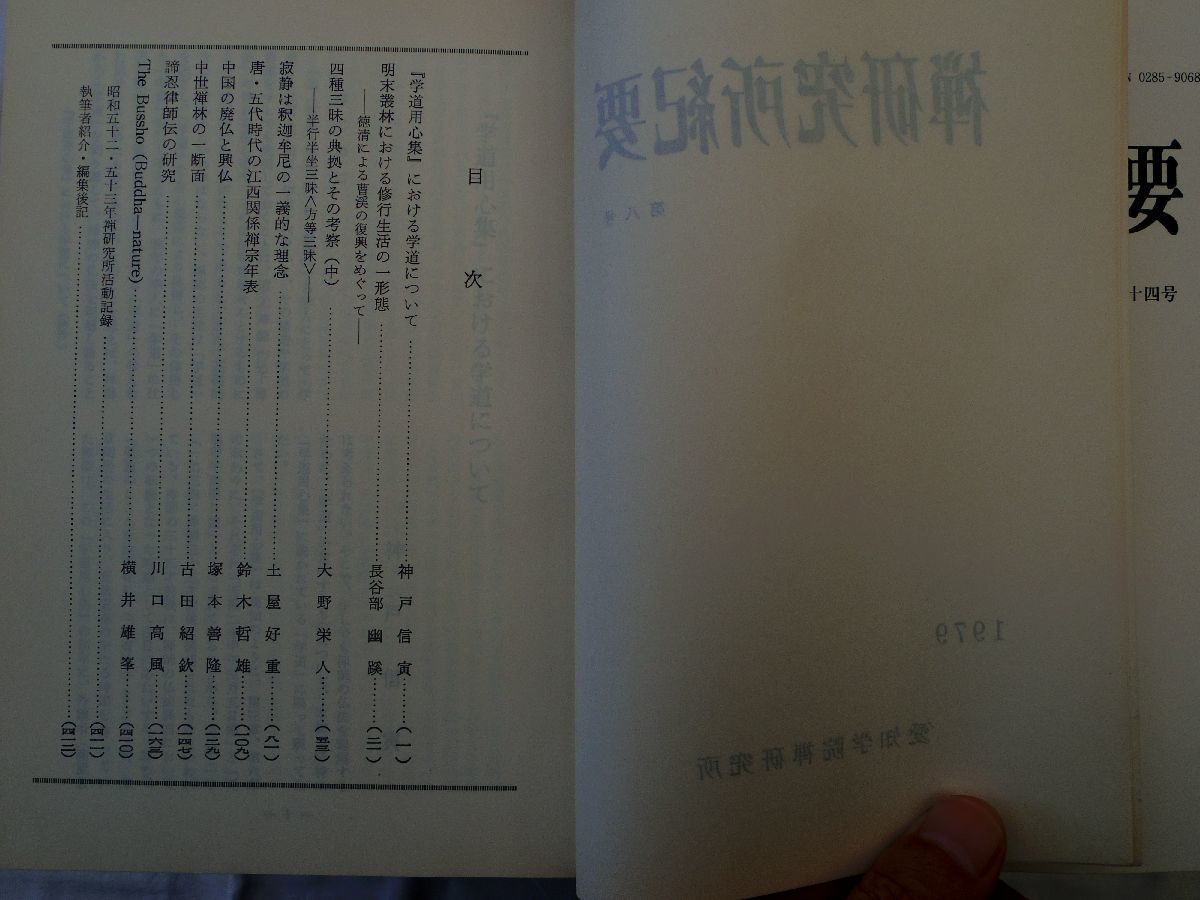 N 0285-9068
要
十四号
禅研究所紀要
第八号
1979
愛知学院禅研究所
目次
『学道用心集』における学道について……神戸信寅……(一)
明末叢林における修行生活の一形態……長谷部幽蹊……(二一)
――徳清による曹渓の復興をめぐって――
四種三昧の典拠とその考察(中)……大野栄人……(五三)
――半行半坐三昧〈方等三昧〉――
寂静は釈迦牟尼の一義的な理念……土屋好重……(八一)
唐・五代時代の江西関係禅宗年表……鈴木哲雄……(一〇九)
中国の廃仏と興仏……塚本善隆……(一三九)
中世禅林の一断面……古田紹欽……(一四七)
諦忍律師伝の研究……川口高風……(一六三)
The Bussho (Buddha―nature)……横井雄峯……(四一〇)
昭和五十二・五十三年禅研究所活動記録……(四一一)
執筆者紹介・編集後記……(四一三)